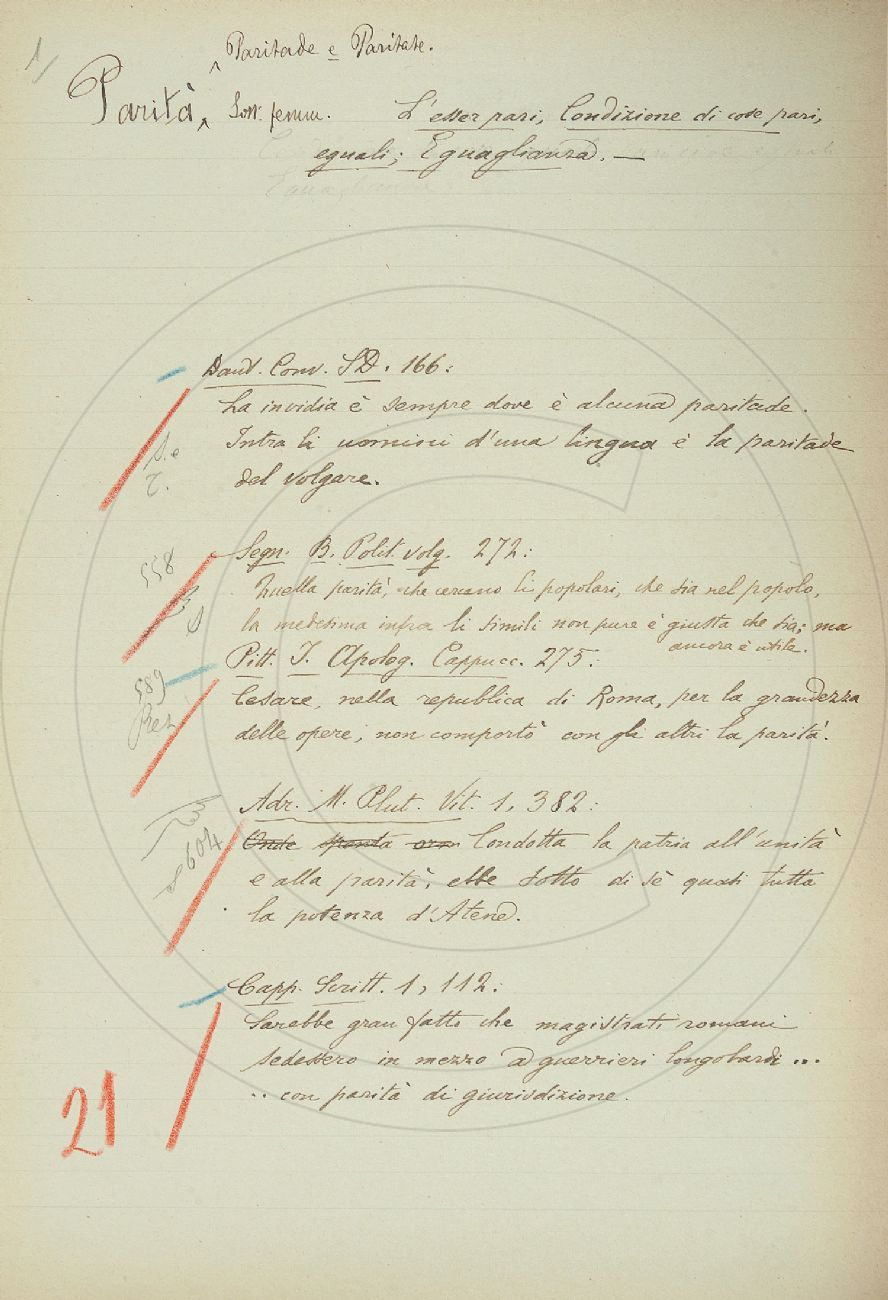 1/
Paritade e Paritate.
Parità, Sost. femm. L'esser pari, Condizione di cose pari,
eguali; Eguaglianza. —
Dant. Conv. SD. 166:
La invidia è sempre dove è alcuna paritade.
Intra li uomini d'una lingua è la paritade
del volgare.
558
Segn. B. Polit. volg. 272:
Quella parità, che cercano li popolari, che sia nel popolo,
la medesima infra li simili non pure è giusta che sia; ma
ancora è utile.
589
Pitt. J. Apolog. Cappucc. 275:
Cesare, nella republica di Roma, per la grandezza
delle opere, non comportò con gli altri la parità.
604
Adr. M. Plut. Vit. 1, 382:
Onde spenta ora Condotta la patria all'unità
e alla parità, ebbe sotto di sè quasi tutta
la potenza d'Atene.
Capp. Scritt. 1, 112:
Sarebbe gran fatto che magistrati romani
sedessero in mezzo a guerrieri longobardi ...
.. con parità di giurisdizione.
21